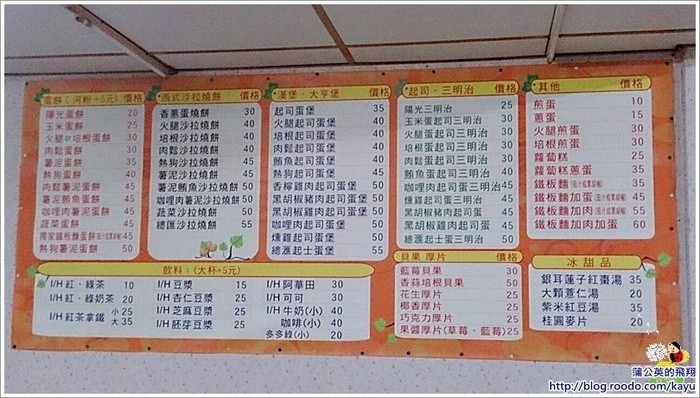 蛋餅（河粉+5元） 價格
陽光蛋餅 20
玉米蛋餅 25
火腿or培根蛋餅 30
肉鬆蛋餅 30
薯泥蛋餅 35
熱狗蛋餅 40
肉鬆薯泥蛋餅 45
薯泥鮪魚蛋餅 45
咖哩肉薯泥蛋餅 45
蔬菜薯泥蛋餅 45
獨家鐵板麵蛋餅 45
熱狗薯泥蛋餅 50
西式沙拉燒餅 價格
香蔥蛋燒餅 35
火腿沙拉燒餅 40
培根沙拉燒餅 40
肉鬆沙拉燒餅 40
薯泥沙拉燒餅 45
熱狗沙拉燒餅 50
薯泥鮪魚沙拉燒餅 50
咖哩肉薯泥沙拉燒餅 50
蔬菜沙拉燒餅 50
總匯沙拉燒餅 55
漢堡、大亨堡 價格
起司蛋堡 35
火腿起司蛋堡 40
培根起司蛋堡 40
肉鬆起司蛋堡 40
鮪魚起司蛋堡 50
熱狗起司蛋堡 50
香檸雞肉起司蛋堡 50
黑胡椒豬肉起司蛋堡 50
黑胡椒牛肉起司蛋堡 50
咖哩肉起司蛋堡 50
燻雞起司蛋堡 50
總匯起士蛋堡 55
起司、三明治 價格
陽光三明治 25
玉米蛋起司三明治 30
火腿蛋起司三明治 35
培根蛋起司三明治 35
肉鬆蛋起司三明治 35
鮪魚蛋起司三明治 45
咖哩肉蛋起司三明治 45
黑胡椒豬起司三明治 45
燻雞起司三明治 45
蔬菜起司三明治 45
總匯起士蛋三明治 50
其他 價格
煎蛋 10
蔥蛋 15
火腿煎蛋 30
培根煎蛋 30
蘿蔔糕 25
蘿蔔糕蔥蛋 35
鐵板麵 35
鐵板麵加蛋 45
鐵板麵加肉 55
鐵板麵加肉加蛋 60
飲料：(大杯+5元)
I/H 紅、綠茶 10
I/H 紅、綠奶茶 20
I/H 紅茶拿鐵 小 25 大 35
I/H 豆漿 15
I/H 杏仁豆漿 25
I/H 芝麻豆漿 25
I/H 胚芽豆漿 25
I/H 阿華田 30
I/H 可可 30
I/H 牛奶(小) 40
咖啡(小) 40
多多綠(小) 20
貝果 厚片 價格
藍莓貝果 30
香蒜培根貝果 50
花生厚片 25
椰香厚片 25
巧克力厚片 25
果醬厚片(草莓、藍莓) 25
冰 甜 品
銀耳蓮子紅棗湯 35
大顆薏仁湯 20
紫米紅豆湯 35
桂圓麥片 20
蒲公英的飛翔
http://blog.roodo.com/kayu